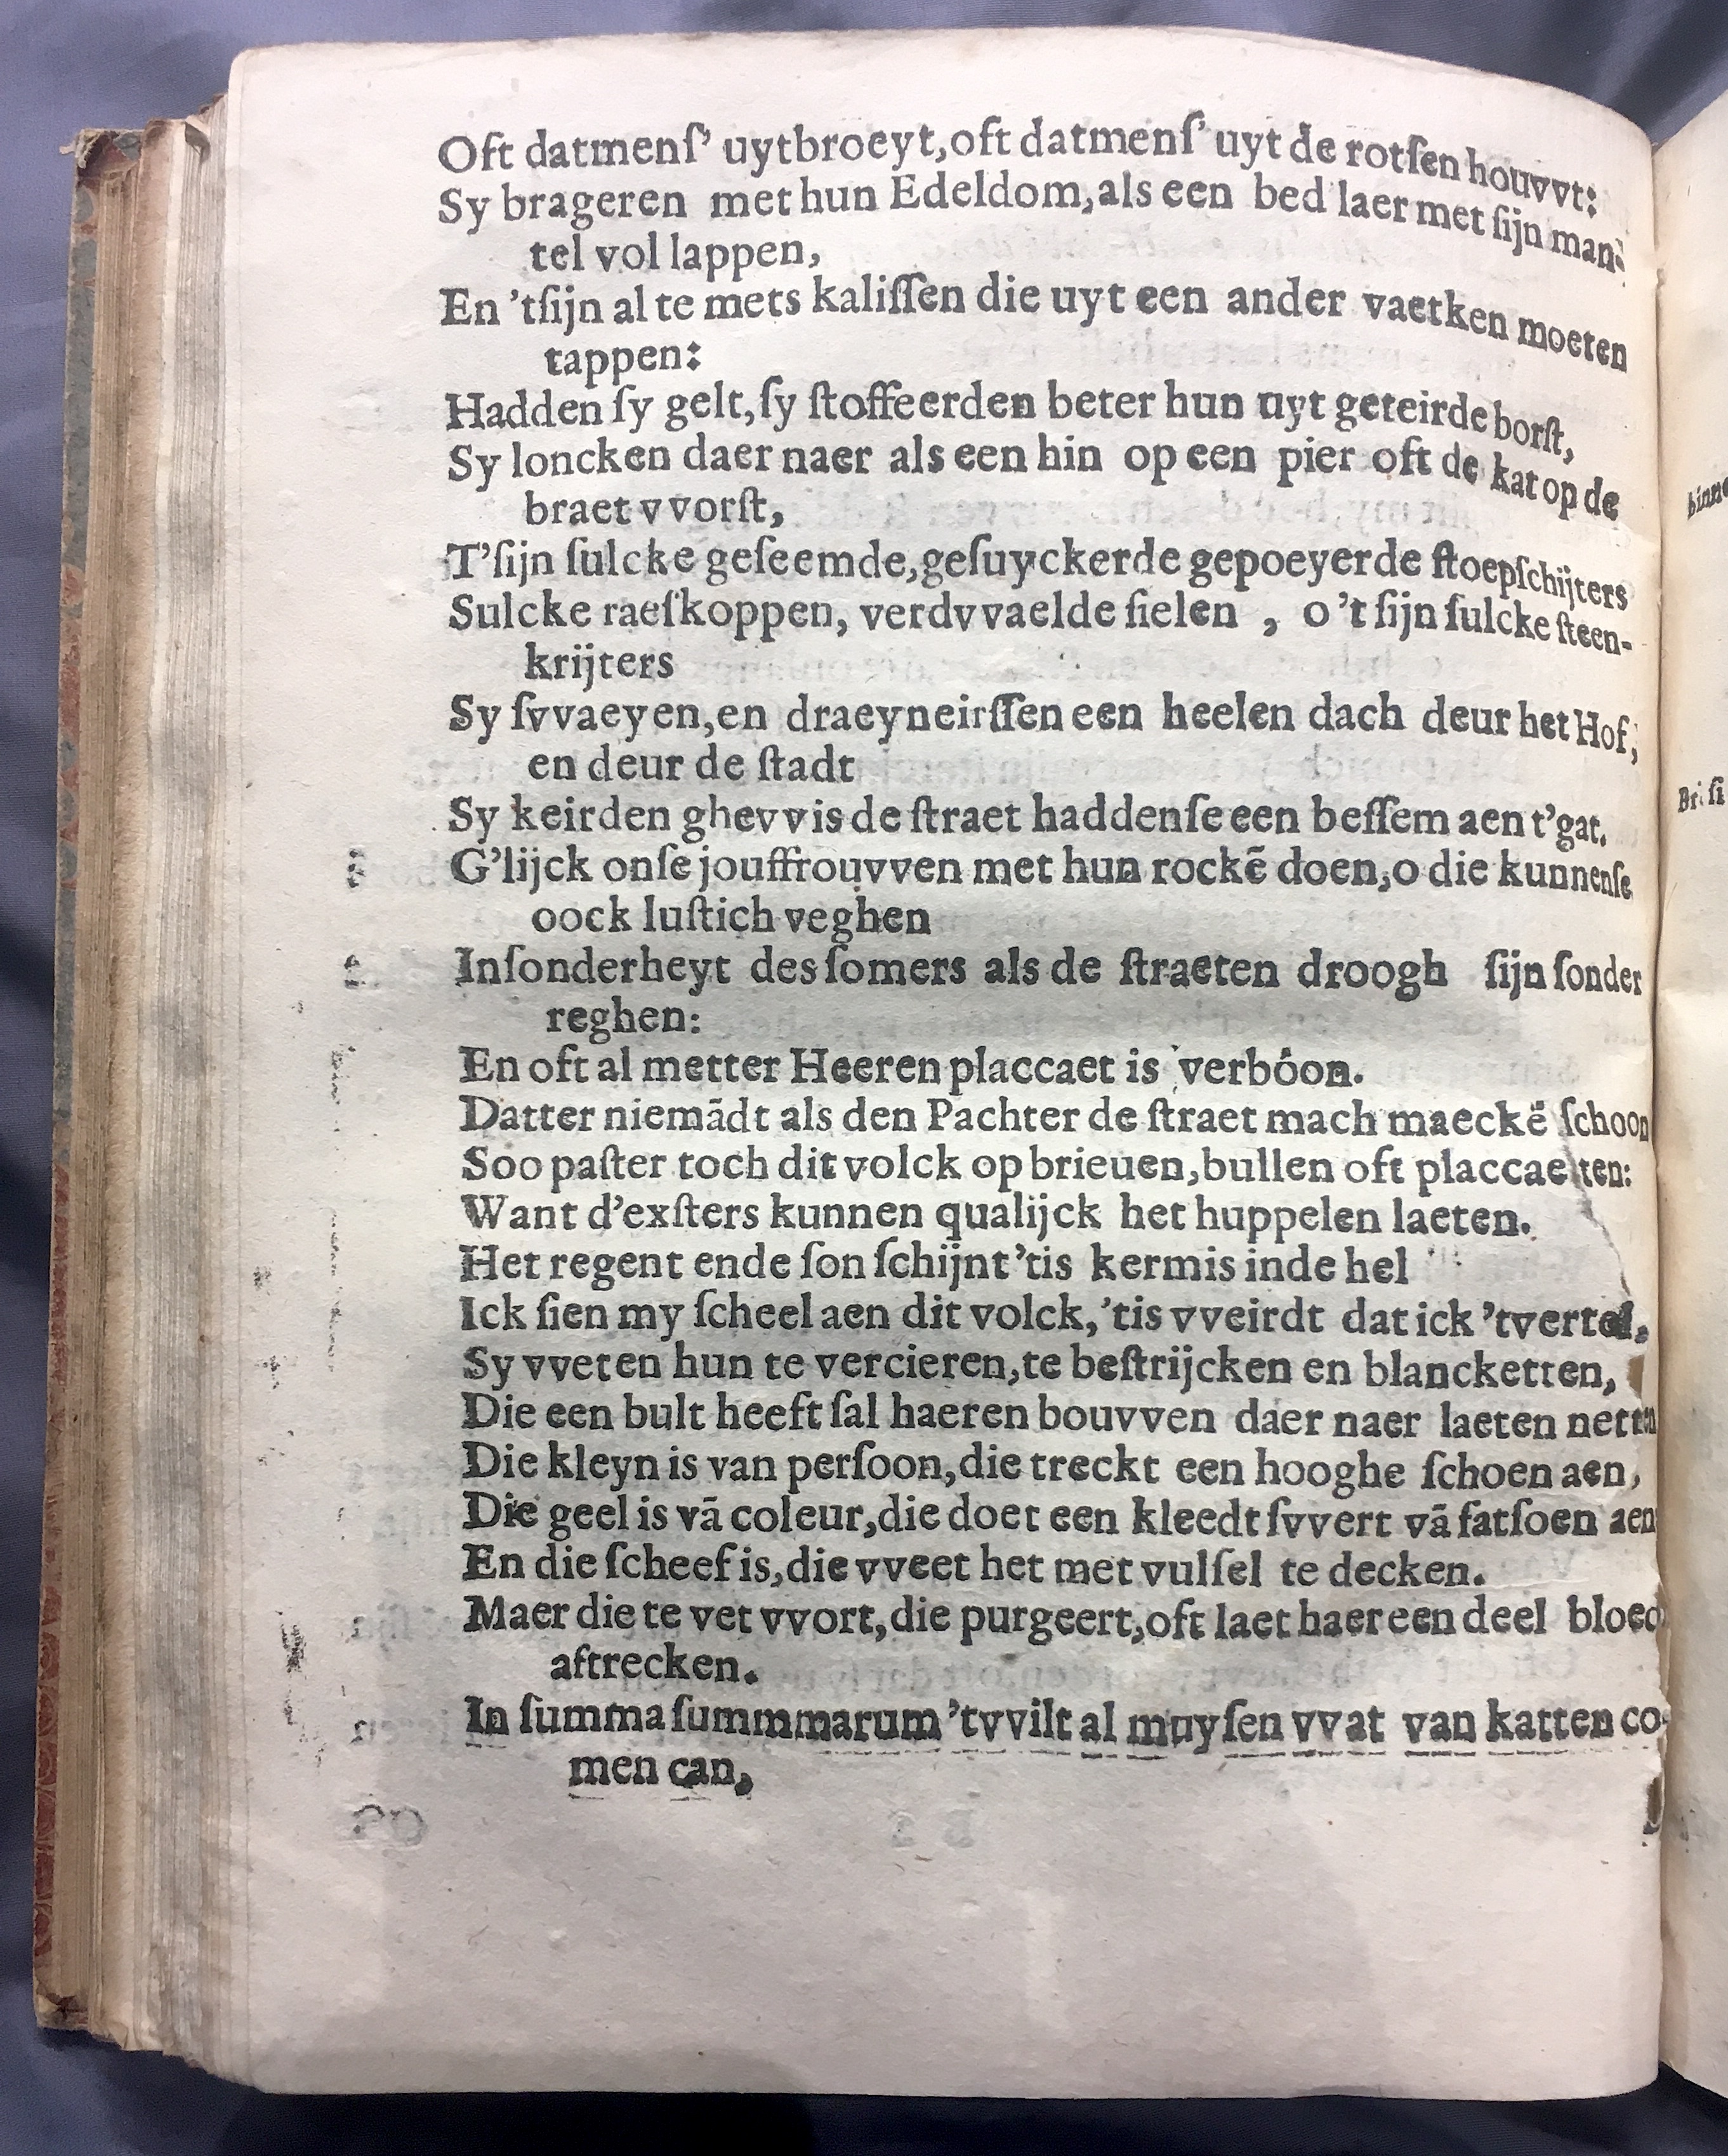 Oft datmenſ' uytbroeyt, oft datmenſ' uyt de rotſen houvvt:
Sy brageren met hun Edeldom, als een bed'laer met ſijn man-
tel vol lappen,
En 'tſijn al te mets kaliſſen die uyt een ander vaetken moeten
tappen:
Hadden ſy gelt, ſy ſtoffeerden beter hun uyt geteirde borſt,
Sy loncken daer naer als een hin op een pier oft de kat op de
braet vvorſt,
T'ſijn ſulcke geſeemde, geſuyckerde gepoeyerde ſtoepſchijters
Sulcke raeſkoppen, verdvvaelde ſielen , o 't ſijn ſulcke ſteen-
krijters
Sy ſvvaeyen, en draeyneirſſen een heelen dach deur het Hof,
en deur de ſtadt
Sy keirden ghevvis de ſtraet haddenſe een beſſem aen t'gat.
G'lijck onſe jouffrouvven met hun rockē doen, o die kunnenſe
oock luſtich veghen
Inſonderheyt des ſomers als de ſtraeten droogh ſijn ſonder
reghen:
En oft al metter Heeren placcaet is verbôon.
Datter niemādt als den Pachter de ſtraet mach maeckē ſchoon
Soo paſter toch dit volck op brieuen, bullen oft placcaeten:
Want d'exſters kunnen qualijck het huppelen laeten.
Het regent ende ſon ſchijnt 'tis kermis inde hel
Ick ſien my ſcheel aen dit volck, 'tis vveirdt dat ick 'tvertel,
Sy vveten hun te vercieren, te beſtrijcken en blancketten,
Die een bult heeft ſal haeren bouvven daer naer laeten netten
Die kleyn is van perſoon, die treckt een hooghe ſchoen aen,
Die geel is vā coleur, die doet een kleedt ſvvert vā fatſoen aen
En die ſcheef is, die vveet het met vulſel te decken.
Maer die te vet vvort, die purgeert, oft laet haer een deel bloed
aftrecken.
In ſumma ſummmarum 'tvvilt al muyſen vvat van katten co-
men can,
binne